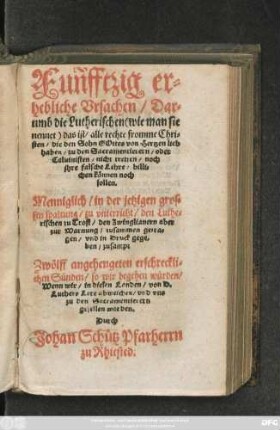 Fünfftzig er-
hebliche Vrsachen / Dar-
umb die Lutherischen (wie man sie
nennet) das ist / alle rechte fromme Chri-
sten / die den Sohn Gottes von Hertzen lieb
haben / zu den Sacramentierern / oder
Caluinisten / nicht treten / noch
jhre falsche Lehre / billi-
chen können noch
sollen.
Menniglich / in der jetzigen gros-
sen spaltung / zu vnterricht / den Luthe-
rischen zu Trost / den Zwinglianern aber
zur Warnung / zusammen getra-
gen / vnd in Druck gege-
ben / zusampt
Zwölff angehengeten erschreckli-
chen Sünden / so wir begehen würden /
Wenn wir / in diesen Landen / von D.
Luthers Lere abweichen / vnd vns
zu den Sacramentirern
gesellen würden.
Durch
Johan Schütz Pfarherrn
zu Rhiested.